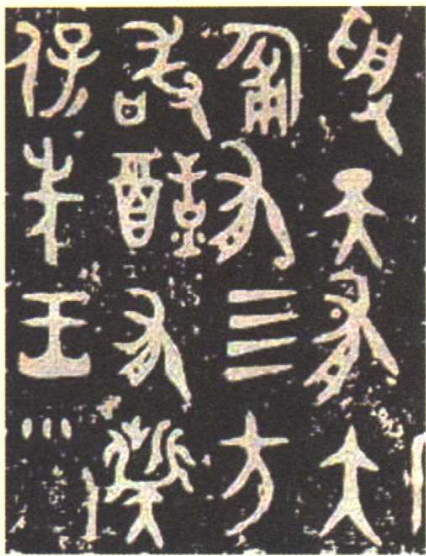 受天有大
匍有亖方
敢有
保先王